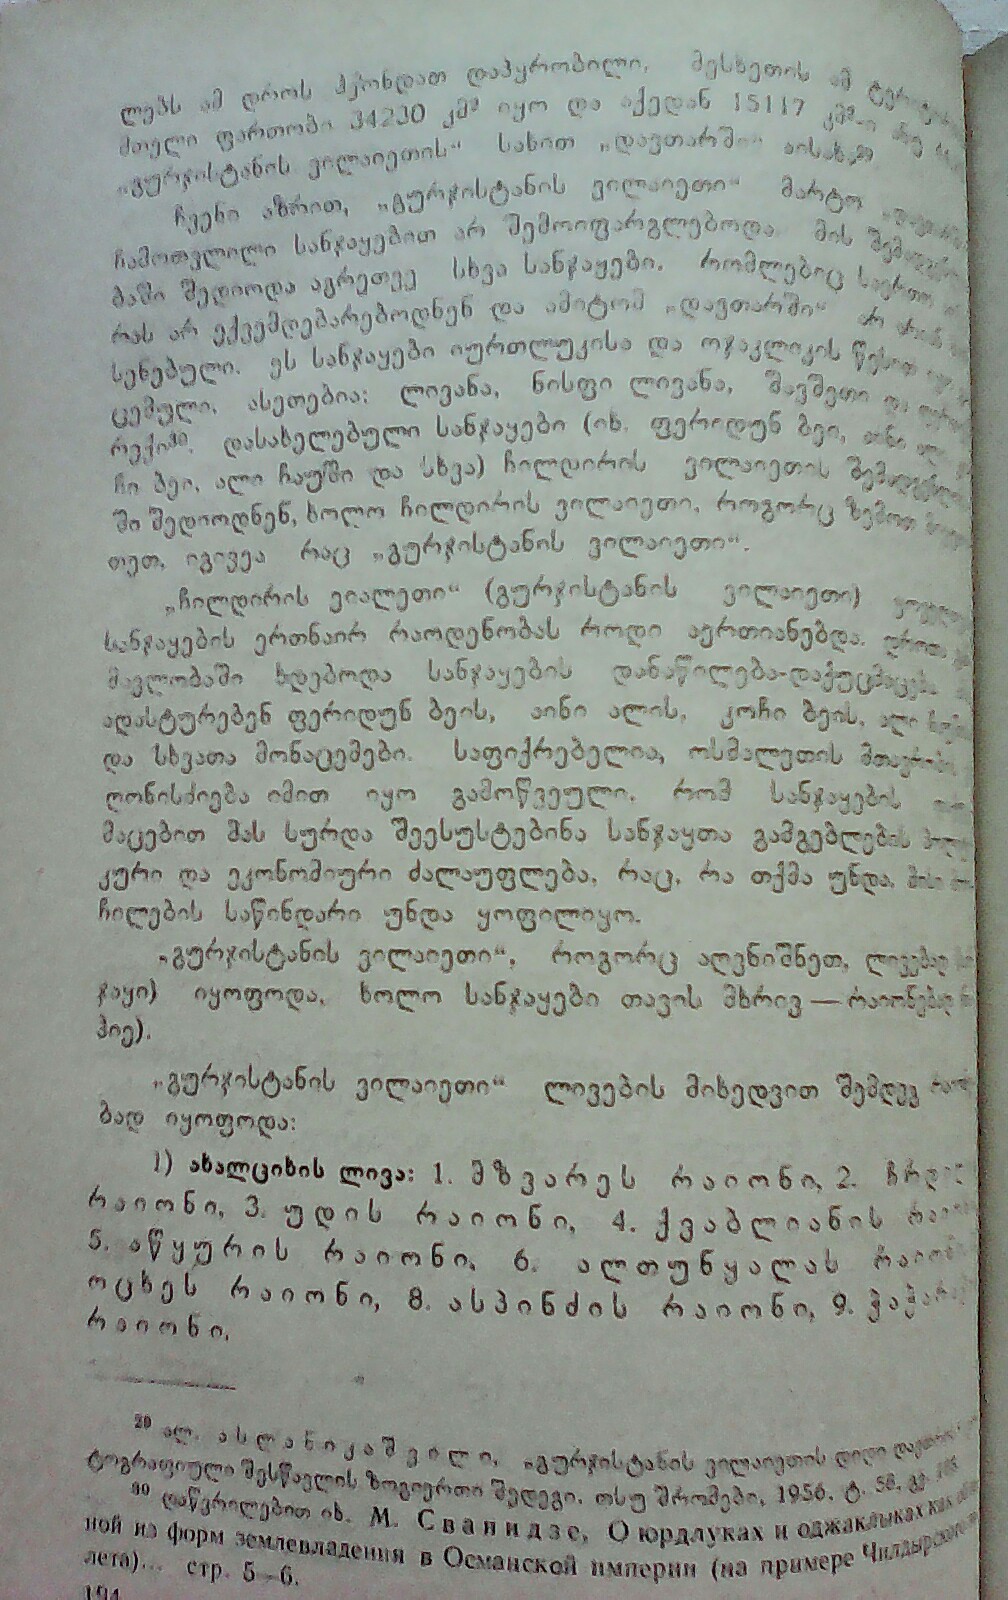 ლებს ამ დროს ჰქონდათ დაპყრობილი. მესხეთის ამ
მთელი ფართობი 34230 კმ² იყო და აქედან 15117 კმ²-ი
„გურჯისტანის ვილაიეთის“ სახით „დავთარში“ აისახა
ჩვენი აზრით, „გურჯისტანის ვილაიეთი“ მარტო
ჩამოთვლილი სანჯაყებით არ შემოიფარგლებოდა. მის
ბაში შედიოდა აგრეთვე სხვა სანჯაყები, რომლებიც
რას არ ექვემდებარებოდნენ და ამიტომ „დავთარში“ არ
სენებული. ეს სანჯაყები იურთლუკისა და ოჯაკლიკის წესით
ცემული. ასეთებია: ლივანა, ნისფი ლივანა, შავშეთი და
რექი³⁰. დასახელებული სანჯაყები (იხ. ფერიდუნ ბეი, აინი ალი,
ჩი ბეი, ალი ჩაუში და სხვა) ჩილდირის ვილაიეთის
ში შედიოდნენ, ხოლო ჩილდირის ვილაიეთი, როგორც ზემოთ
თეთ, იგივეა რაც „გურჯისტანის ვილაიეთი“.
„ჩილდირის ეიალეთი“ (გურჯისტანის ვილაიეთი)
სანჯაყების ერთნაირ რაოდენობას როდი აერთიანებდა. დროთა
მავლობაში ხდებოდა სანჯაყების დანაწილება-დაქუცმაცება.
ადასტურებენ ფერიდუნ ბეის, აინი ალის, კოჩი ბეის, ალი
და სხვათა მონაცემები. საფიქრებელია, ოსმალეთის მთავრობის
ღონისძიება იმით იყო გამოწვეული, რომ სანჯაყების
მაცებით მას სურდა შეესუსტებინა სანჯაყთა გამგებლების
კური და ეკონომიური ძალაუფლება, რაც, რა თქმა უნდა, მისი
ჩილების საწინდარი უნდა ყოფილიყო.
„გურჯისტანის ვილაიეთი“, როგორც აღვნიშნეთ, ლივებად
ჯაყი) იყოფოდა, ხოლო სანჯაყები თავის მხრივ — რაიონებად
ჰიე).
„გურჯისტანის ვილაიეთი“ ლივების მიხედვით შემდეგ
ბად იყოფოდა:
1) ახალციხის ლივა: 1. მზვარეს რაიონი, 2.
რაიონი, 3. უდის რაიონი, 4. ქვაბლიანის
5. აწყურის რაიონი, 6. ალთუნყალას
ოცხეს რაიონი, 8. ასპინძის რაიონი, 9.
რაიონი.
²⁹ ალ. ასლანიკაშვილი, „გურჯისტანის ვილაიეთის დიდი
ტოგრაფიული შესწავლის ზოგიერთი შედეგი. თსუ შრომები, 1956, ტ. 58, გვ.
³⁰ დაწვრილებით იხ. М. Сванидзе, О юрдлуках и оджаклыках как
ной из форм землевладения в Османской империи (на примере Чилдырского
лета)... стр. 5—6.
194